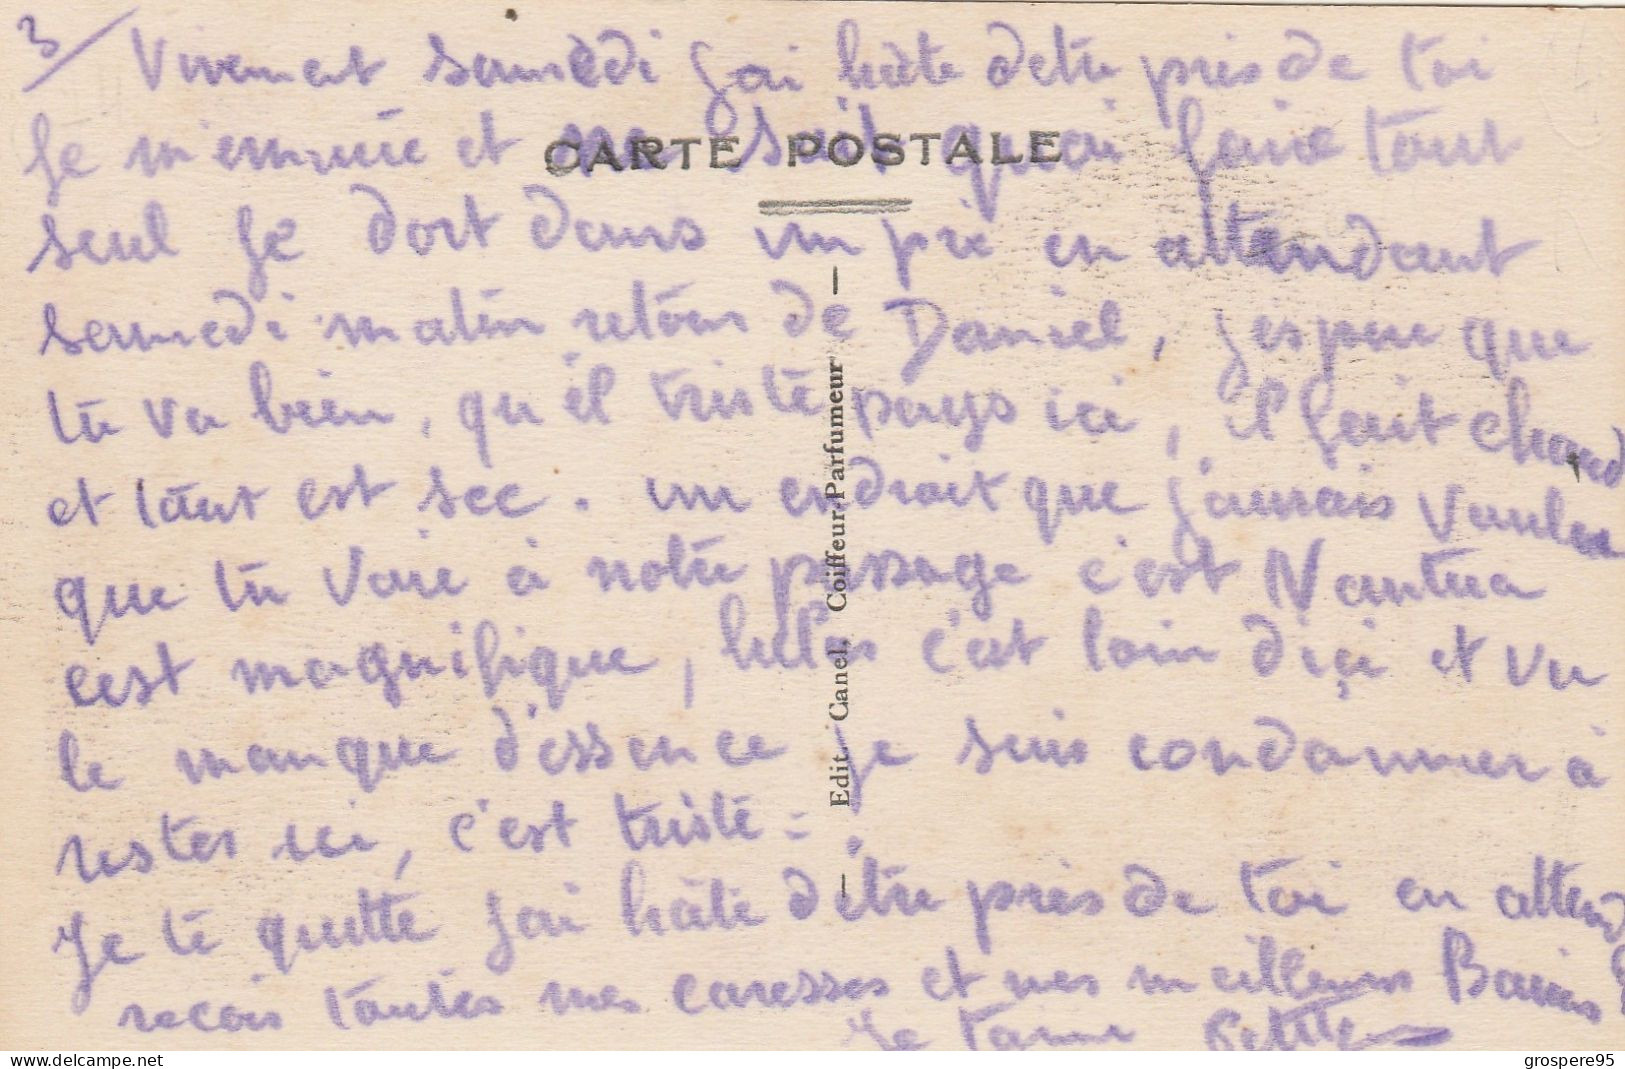 3/ Vivement samedi j'ai hâte detre près de toi
je m'ennuie et ne sait quoi faire tout
CARTE POSTALE
seul je dort dans un pré en attendant
samedi matin retour de Daniel, j'espere que
tu va bien, qu'el triste pays ici, il fait chaud
et tout est sec. un endroit que j'amais voulu
que tu voie à notre passage c'est Nantua
c'est magnifique, helas c'est loin d'ici et vu
le manque d'essence je suis condanner à
rester ici, c'est triste.
Je te quitte j'ai hâte d'être près de toi en attend
recois toutes mes caresses et mes meilleurs Baisers
Je t'aime
Edit. Canel, Coiffeur-Parfumeur
grospere95